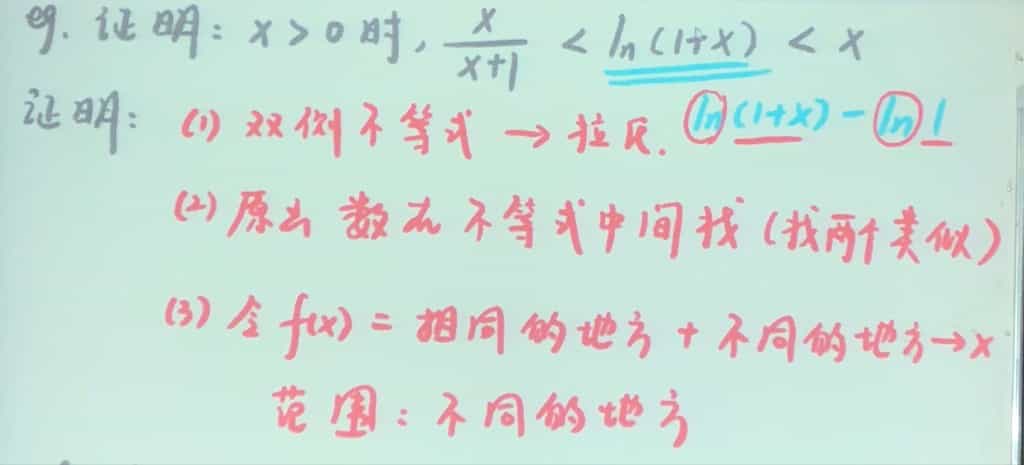 eg. 证明: x > 0 时, x/(x+1) < ln(1+x) < x
证明: (1) 双侧不等式 → 拉氏. ln(1+x) - ln 1
(2) 原函数在不等式中间找 (找两个类似)
(3) 令 f(x) = 相同的地方 + 不同的地方→x
范围: 不同的地方